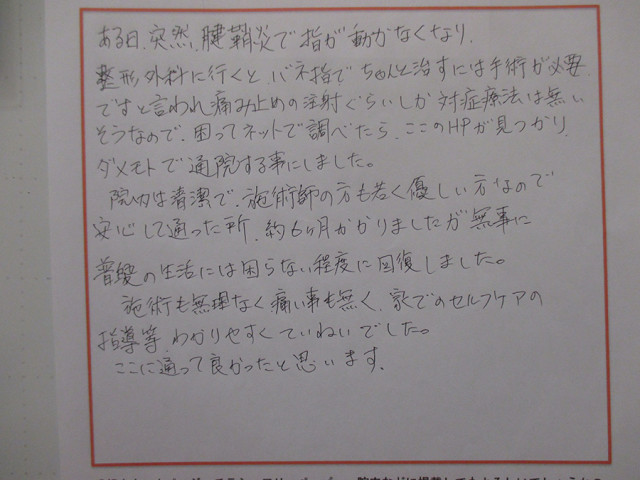 ある日、突然、腱鞘炎で指が動かなくなり、
整形外科に行くと バネ指で ちゃんと治すには手術が必要
ですと言われ痛み止めの注射ぐらいしか対症療法は無い
そうなので、困ってネットで調べたら、ここのHPが見つかり、
ダメモトで通院する事にしました。
院内は清潔で、施術師の方も若く優しい方なので
安心して通った所、約6ヶ月かかりましたが無事に
普段の生活には困らない程度に回復しました。
施術も無理なく痛い事も無く、家でのセルフケアの
指導等、わかりやすくていねいでした。
ここに通って良かったと思います。